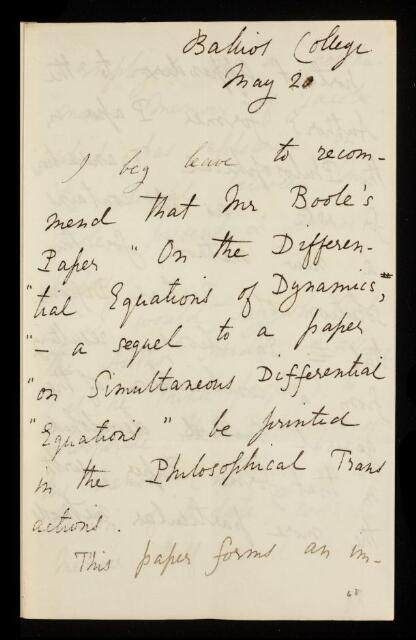 Balliol College
May 20
I beg leave to recom-
mend that Mr Boole's
Paper " On the Differen-
"tial Equations of Dynamics,
"— a sequel to a paper
"on Simultaneous Differential
"Equations " be printed
in the Philosophical Trans
actions.
This paper forms an im-